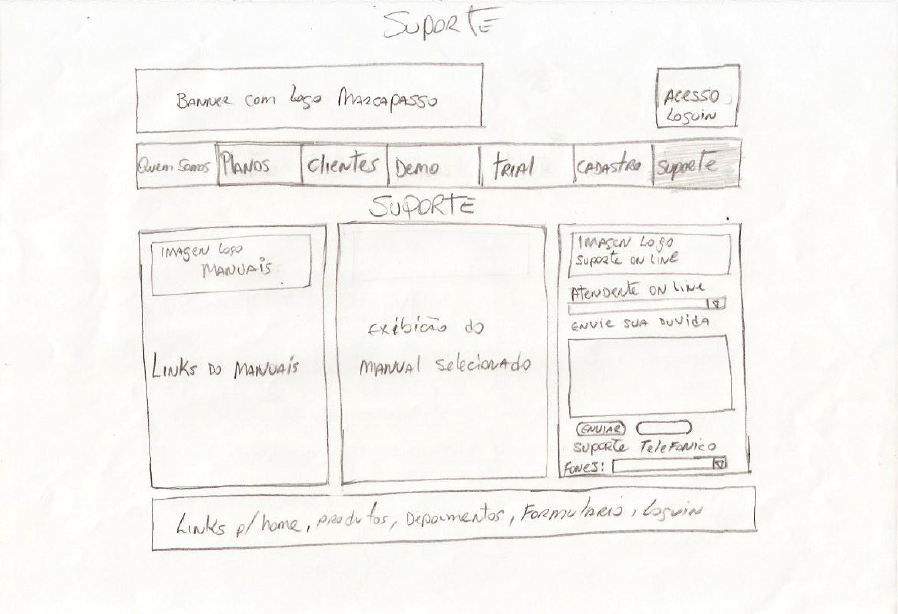 SUPORTE
BANNER COM LOGO MARCAPASSO
ACESSO
LOGUIN
QUEM SOMOS
PLANOS
CLIENTES
DEMO
TRIAL
CADASTRO
SUPORTE
SUPORTE
IMAGEN LOGO
MANUAIS
LINKS DO MANUAIS
EXIBICÃO DO
MANUAL SELECIONADO
IMAGEN LOGO
SUPORTE ON LINE
ATENDENTE ON LINE
ENVIE SUA DUVIDA
ENVIAR
SUPORTE TELEFONICO
FONES:
LINKS P/ HOME, PRODUTOS, DEPOIMENTOS, FORMULARIO, LOGUIN